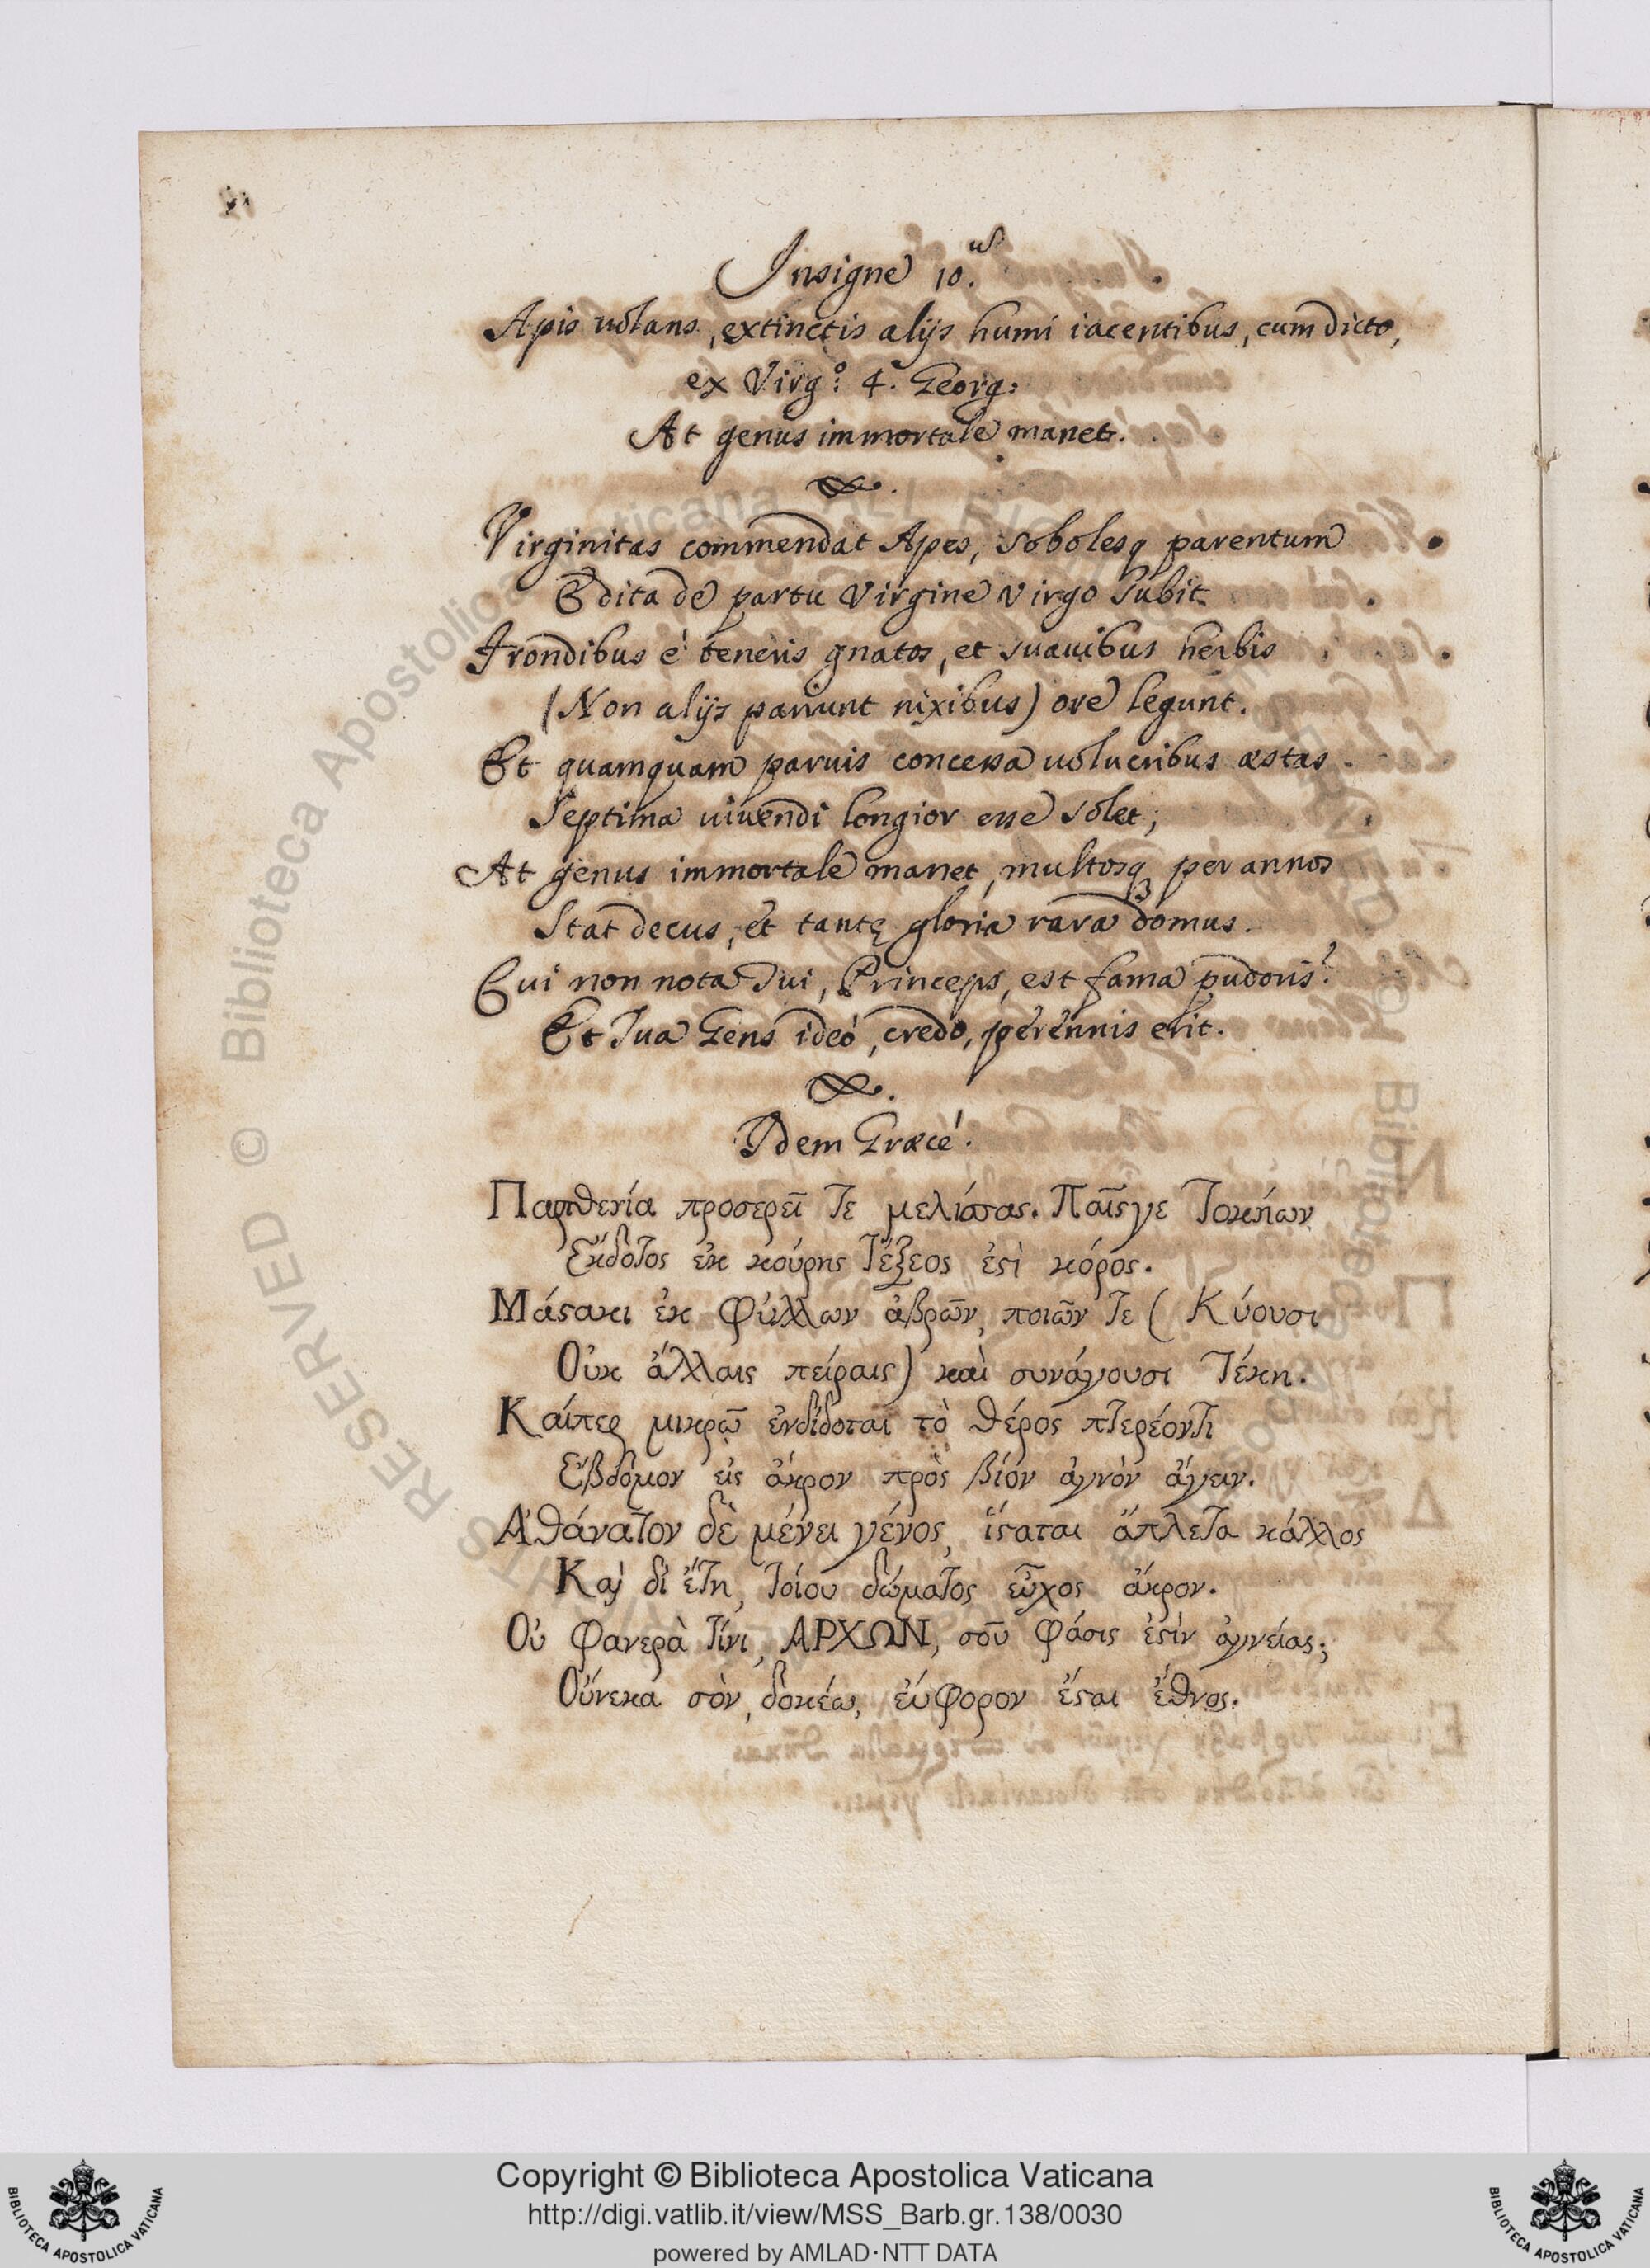 Insigne 10.us
Apis uolans, extinctis alijs humi iacentibus, cum dicto,
ex Virg.o: 4. Georg:
At genus immortale manet.
Virginitas commendat Apes, sobolesq parentum
Edita de partu Virgine Virgo subit.
Frondibus è teneris gnatos, et suauibus herbis
(Non alijs pariunt nixibus) ore legunt.
Et quamquam paruis concessa uolucribus æstas
Septima uiuendi longior esse solet;
At genus immortale manet, multosq per annos
Stat decus, et tantę gloria rara domus.
Cui non nota Tui, Princeps, est fama pudoris?
Et Tua Gens ideò, credo, perennis erit.
Idem Græcè.
Παρθενία προσερεῖ τε μελίσσας. Παῖς γε τοκήων
Ἔκδοτος ἐκ κούρης τέξεος ἐστὶ κόρος.
Μάστακι ἐκ φύλλων ἁβρῶν, ποιῶν τε ( Κύουσι
Οὐκ ἄλλαις πείραις) καὶ συνάγουσι τέκη.
Καίπερ μικρῷ ἐνδίδοται τὸ θέρος πτερέοντι
Ἕβδομον εἰς ἄκρον πρὸς βίον ἁγνὸν ἄγειν.
Ἀθάνατον δὲ μένει γένος, ἵσταται ἄπλετα κάλλος
Καὶ δι ἔτη, τοίου δώματος εὖχος ἄκρον.
Οὐ φανερὰ τίνι, ΑΡΧΩΝ, σοῦ φάσις ἐστὶν ἁγνείας;
Οὕνεκα σὸν, δοκέω, εὐφορον ἔσται ἔθνος.
RIGHTS RESERVED © Biblioteca Apostolica Vaticana
Copyright © Biblioteca Apostolica Vaticana
http://digi.vatlib.it/view/MSS_Barb.gr.138/0030
powered by AMLAD·NTT DATA
BIBLIOTECA APOSTOLICA VATICANA
BIBLIOTECA APOSTOLICA VATICANA